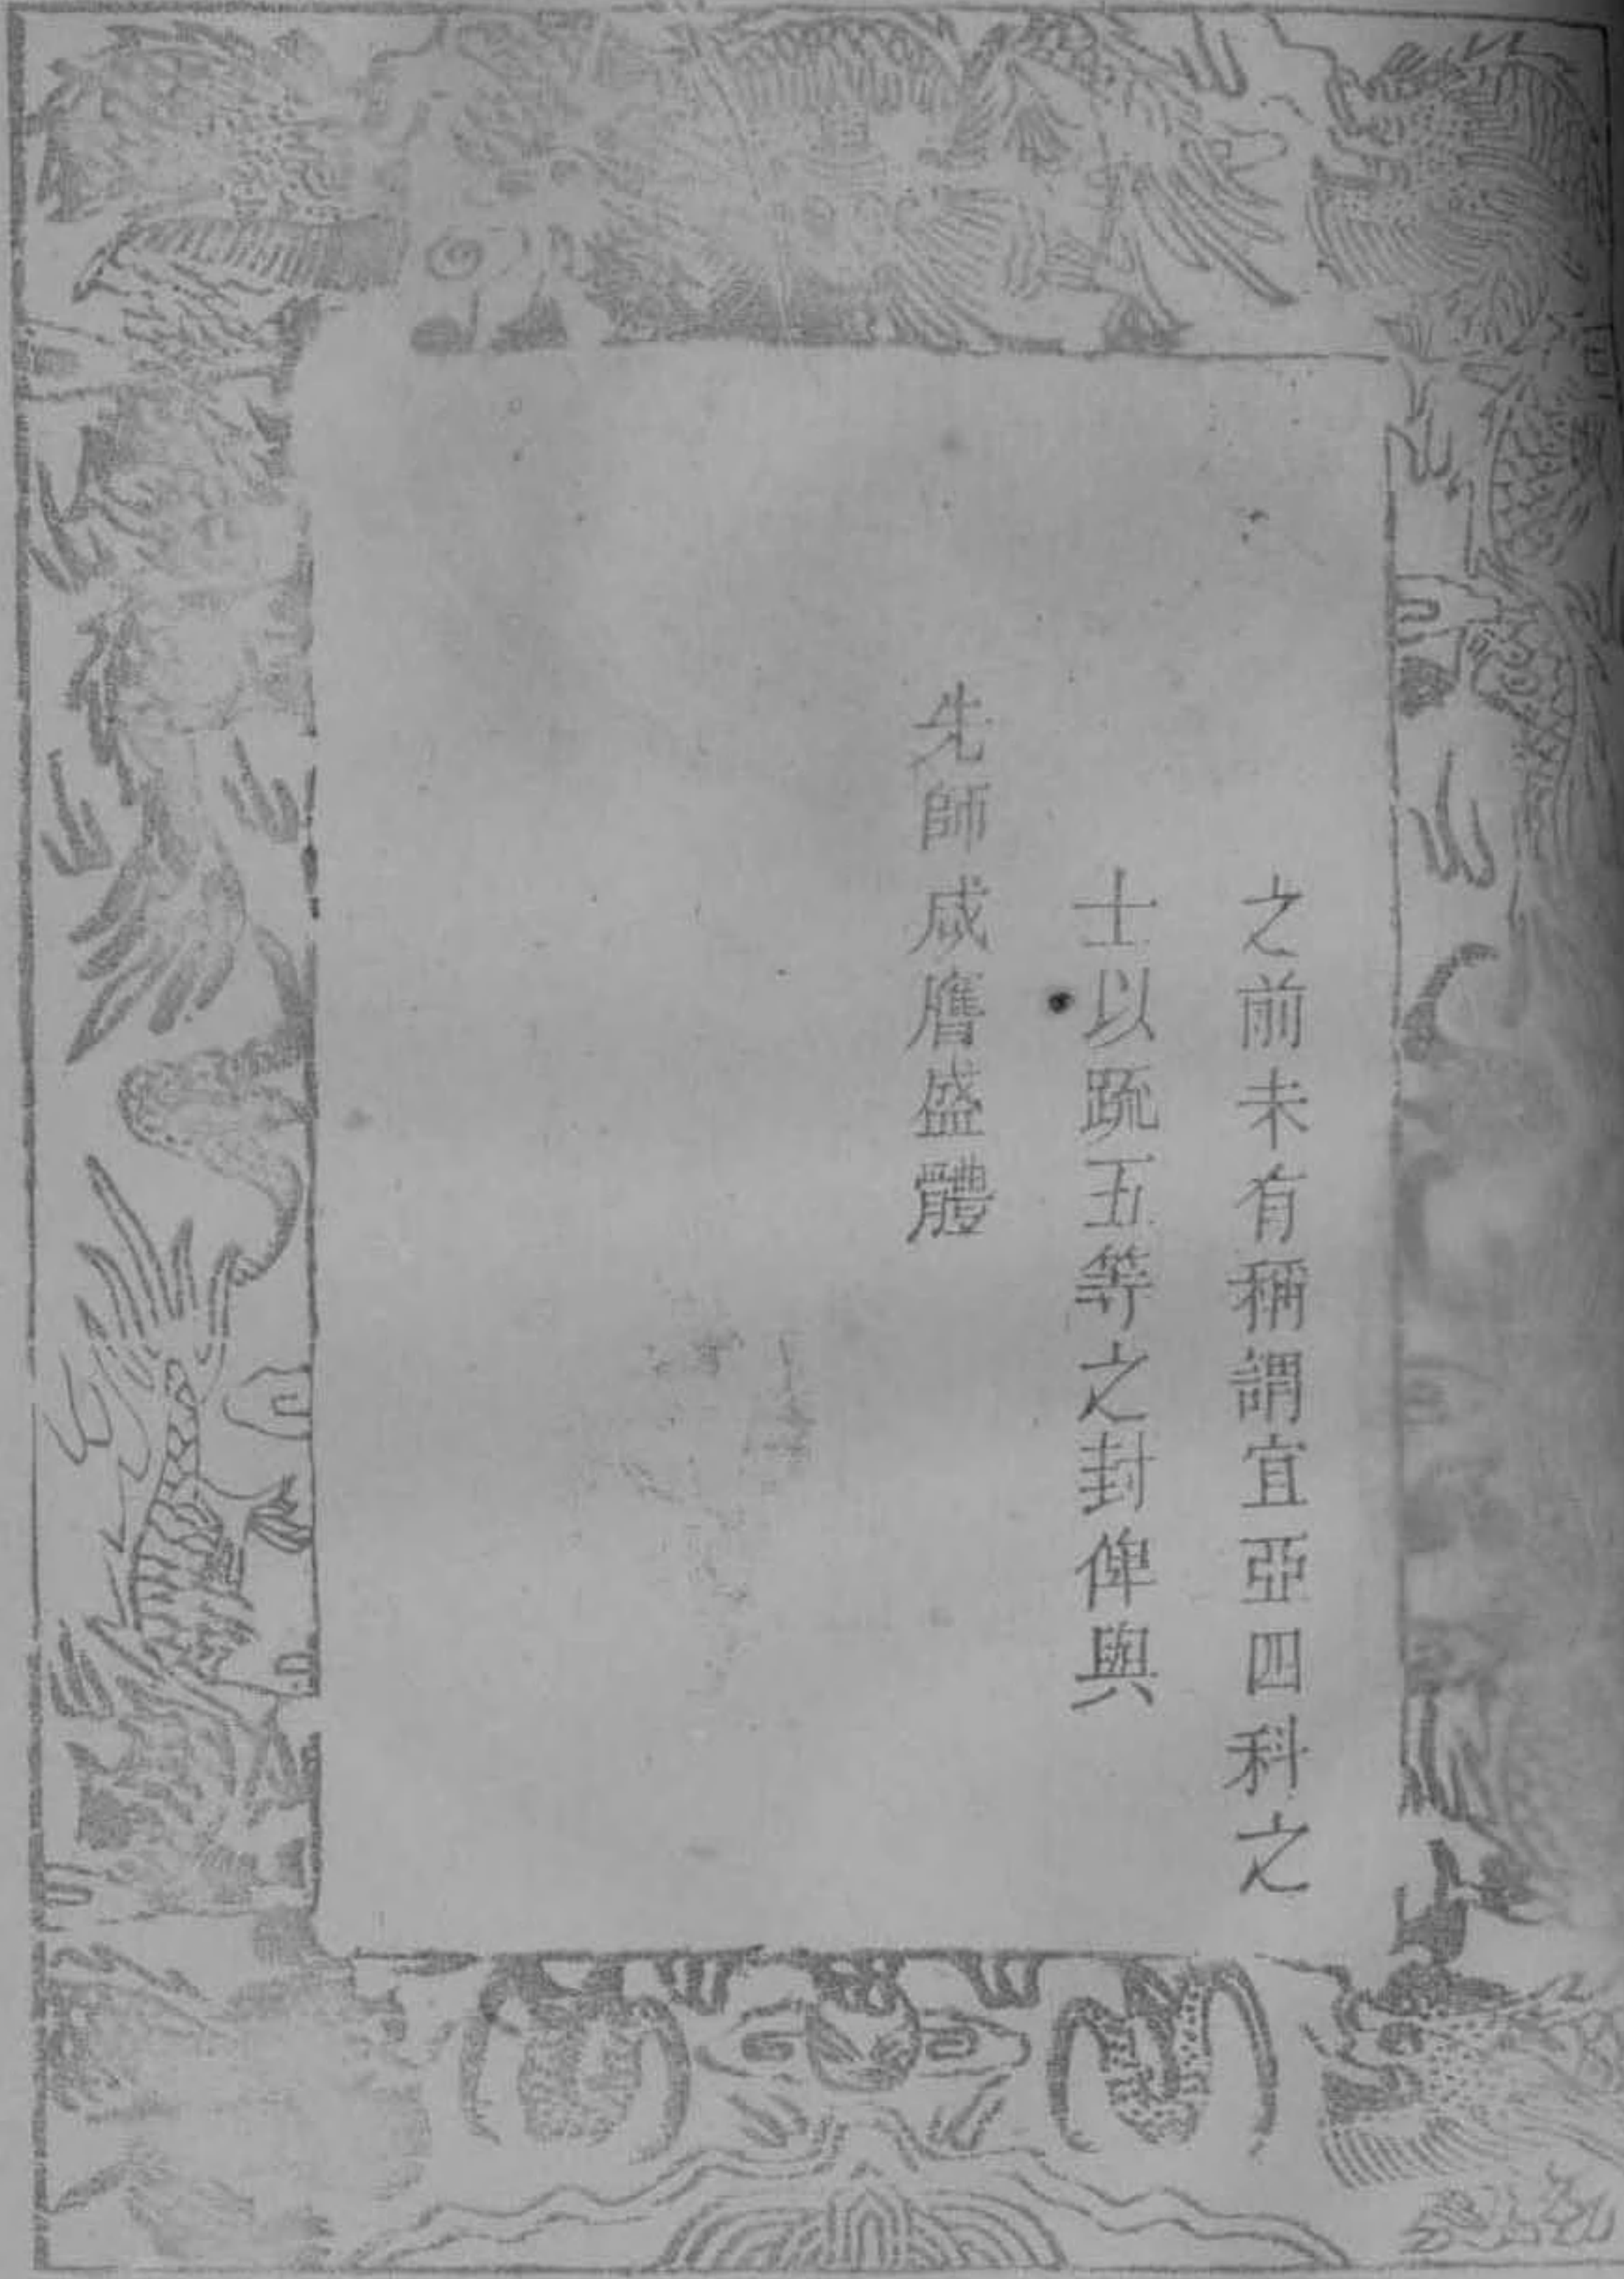 之前未有稱謂宜亞四科之
士以䟽五等之封俾與
先師咸膺盛體